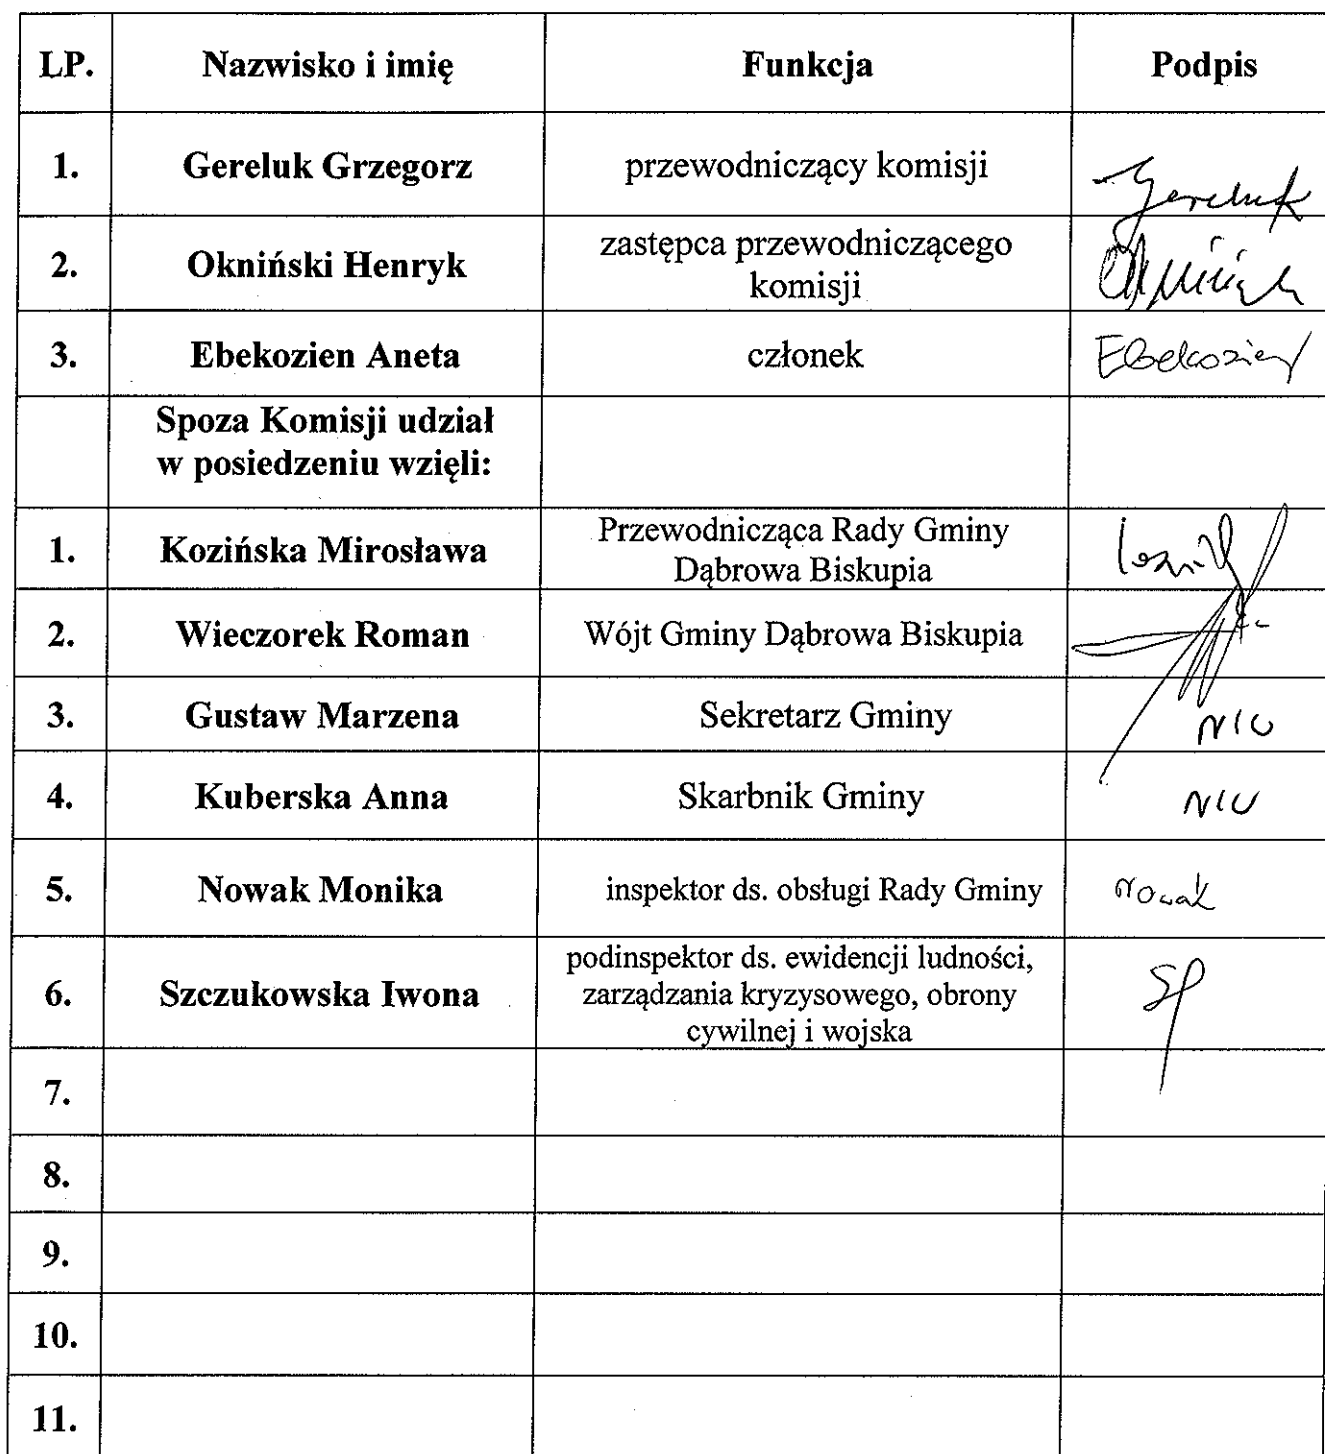 LP. Nazwisko i imię Funkcja Podpis
1. Gereluk Grzegorz przewodniczący komisji Gereluk
2. Okniński Henryk zastępca przewodniczącego
komisji
3. Ebekozien Aneta członek Ebekozien
Spoza Komisji udział
w posiedzeniu wzięli:
1. Kozińska Mirosława Przewodnicząca Rady Gminy
Dąbrowa Biskupia
2. Wieczorek Roman Wójt Gminy Dąbrowa Biskupia
3. Gustaw Marzena Sekretarz Gminy
4. Kuberska Anna Skarbnik Gminy
5. Nowak Monika inspektor ds. obsługi Rady Gminy Nowak
6. Szczukowska Iwona podinspektor ds. ewidencji ludności,
zarządzania kryzysowego, obrony
cywilnej i wojska
7.
8.
9.
10.
11.